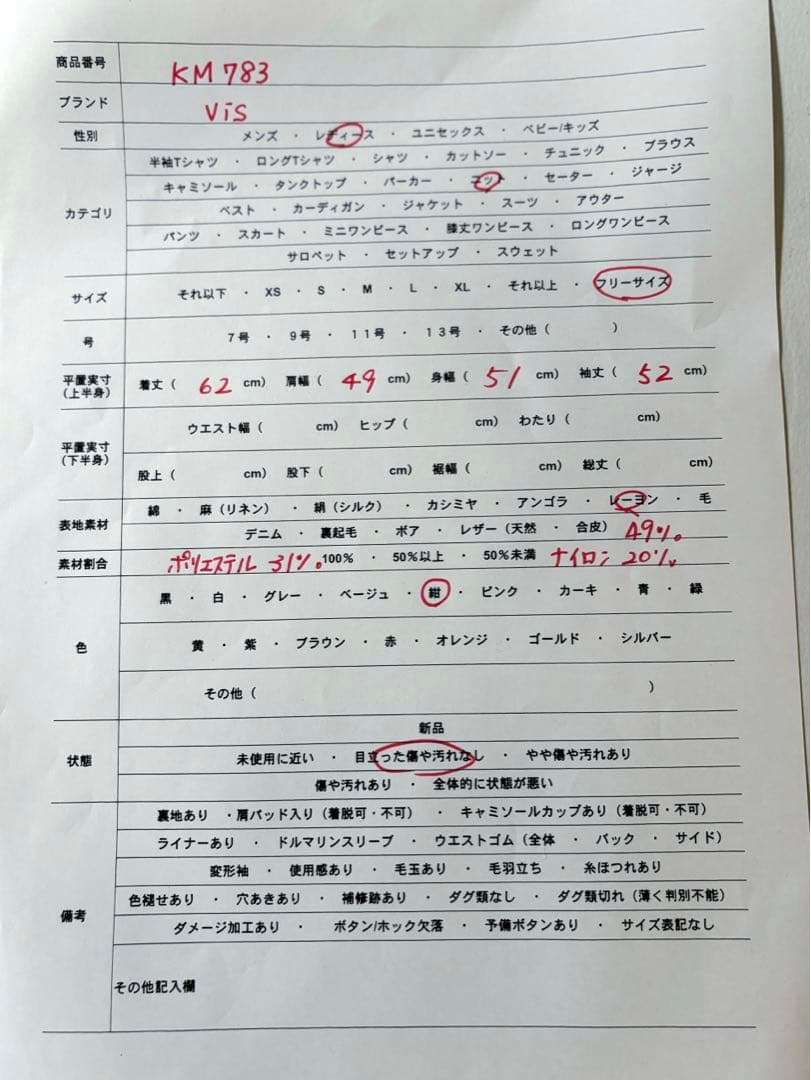 商品番号 KM 783
ブランド ViS
性別 メンズ ・ レディース ・ ユニセックス ・ ベビー/キッズ
カテゴリ
半袖Tシャツ ・ ロングTシャツ ・ シャツ ・ カットソー ・ チュニック ・ ブラウス
キャミソール ・ タンクトップ ・ パーカー ・ ニット ・ セーター ・ ジャージ
ベスト ・ カーディガン ・ ジャケット ・ スーツ ・ アウター
パンツ ・ スカート ・ ミニワンピース ・ 膝丈ワンピース ・ ロングワンピース
サロペット ・ セットアップ ・ スウェット
サイズ それ以下 ・ XS ・ S ・ M ・ L ・ XL ・ それ以上 ・ フリーサイズ
号 7号 ・ 9号 ・ 11号 ・ 13号 ・ その他 ( )
平置実寸
(上半身)
着丈 ( 62 cm) 肩幅 ( 49 cm) 身幅 ( 51 cm) 袖丈 ( 52 cm)
平置実寸
(下半身)
ウエスト幅 ( cm) ヒップ ( cm) わたり ( cm)
股上 ( cm) 股下 ( cm) 裾幅 ( cm) 総丈 ( cm)
表地素材
綿 ・ 麻 (リネン) ・ 絹 (シルク) ・ カシミヤ ・ アンゴラ ・ レーヨン ・ 毛
デニム ・ 裏起毛 ・ ボア ・ レザー (天然 ・ 合皮) 49%
素材割合 ポリエステル 31%. 100% ・ 50%以上 ・ 50%未満 ナイロン 20%
色
黒 ・ 白 ・ グレー ・ ベージュ ・ 紺 ・ ピンク ・ カーキ ・ 青 ・ 緑
黄 ・ 紫 ・ ブラウン ・ 赤 ・ オレンジ ・ ゴールド ・ シルバー
その他 ( )
状態
新品
未使用に近い ・ 目立った傷や汚れなし ・ やや傷や汚れあり
傷や汚れあり ・ 全体的に状態が悪い
備考
裏地あり ・肩パッド入り (着脱可・不可) ・ キャミソールカップあり (着脱可・不可)
ライナーあり ・ ドルマリンスリーブ ・ ウエストゴム (全体 ・ バック ・ サイド)
変形袖 ・ 使用感あり ・ 毛玉あり ・ 毛羽立ち ・ 糸ほつれあり
色褪せあり ・ 穴あきあり ・ 補修跡あり ・ ダグ類なし ・ ダグ類切れ (薄く判別不能)
ダメージ加工あり ・ ボタン/ホック欠落 ・ 予備ボタンあり ・ サイズ表記なし
その他記入欄